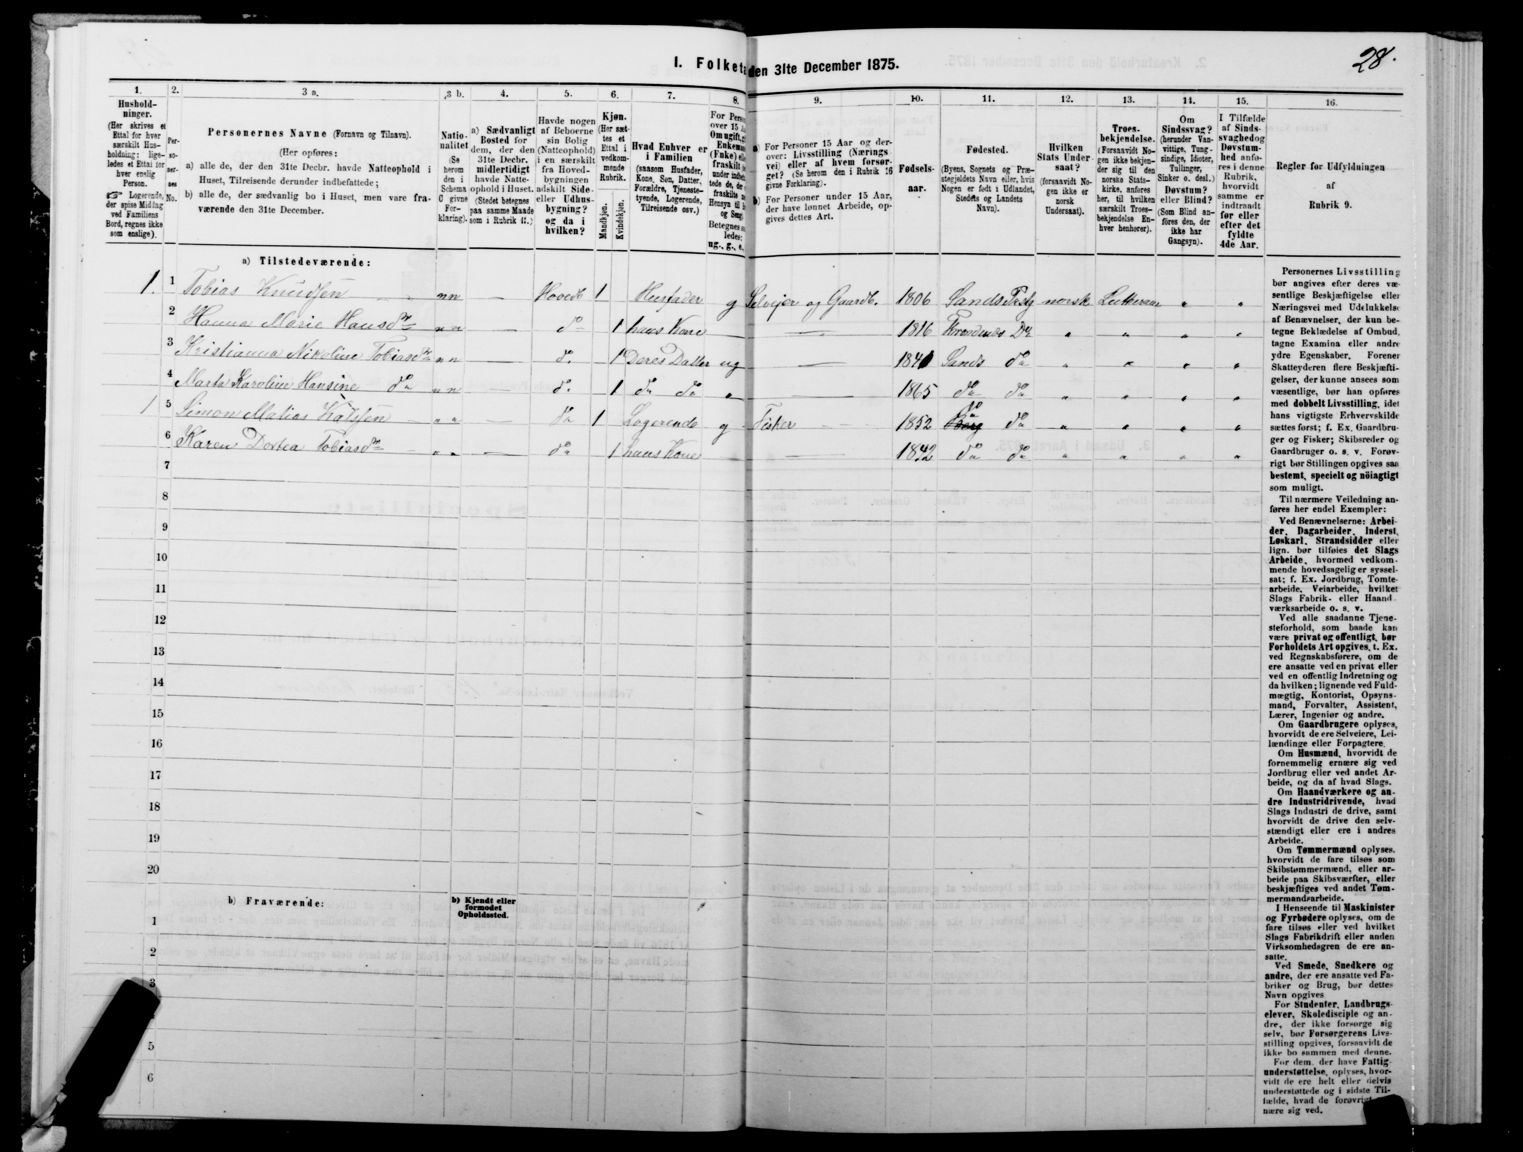 28.
I. Folket
den 31te December 1875.
1.
2.
3 a.
3 b.
4.
5.
6.
7.
8.
9.
10.
11.
12.
13.
14.
15.
16.
Hushold-
ninger.
(Her skrives et
Ettal for hver
særskilt Hus-
holdning; lige-
ledes et Ettal for
hver enslig
Person.
☞ Logerende,
der spise Middag
ved Familiens
Bord, regnes ikke
som enslige).
Per-
so-
ner-
nes
No.
Personernes Navne (Fornavn og Tilnavn).
(Her opføres:
a) alle de, der den 31te Decbr. havde Natteophold i
Huset, Tilreisende derunder indbefattede;
b) alle de, der sædvanlig bo i Huset, men vare fra-
værende den 31te December.
Natio-
nalitet
(Se
herom
den i
Schema
C givne
For-
klaring).
a) Sædvanligt
Bosted for
dem, der den
31te Decbr.
midlertidigt
havde Natte-
ophold i Huset.
(Stedet betegnes
paa samme Maade
som i Rubrik 11.)
Havde nogen
af Beboerne
sin Bolig
(Natteophold)
i en særskilt
fra Hoved-
bygningen
adskilt Side-
eller Udhus-
bygning?
og da i
hvilken?
Kjøn.
(Her sæt-
tes et
Ettal i
vedkom-
mende
Rubrik.
Mandkjøn.
Kvindekjøn.
Hvad Enhver er
i Familien
(saasom Husfader,
Kone, Søn, Datter,
Forældre, Tjeneste-
tyende, Logerende,
Tilreisende osv.)
For Perso
over 15 A
Om ugift, g
Enkema
(Enke) elle
fraskilt
a) For Personer 15 Aar og der-
over: Livsstilling (Nærings
vei) eller af hvem forsør-
get? (Se herom den i Rubrik 16
givne Forklaring).
b) For Personer under 15 Aar,
der have lønnet Arbeide, op-
gives dettes Art.
Fødsels-
aar.
Fødested.
(Byens, Sognets og Præ-
stegjeldets Navn eller, hvis
Nogen er født i Udlandet,
Stedets og Landets
Navn).
Hvilken
Stats Under-
saat?
(forsaavidt No-
gen ikke er
norsk
Undersaat).
Troes-
bekjendelse.
(Forsaavidt No-
gen ikke bekjen-
der sig til den
norske Stats-
kirke, anføres
her, til hvilken
særskilt Troes-
bekjendelse En-
hver henhører).
Om
Sindssvag?
(herunder Van-
vittige, Tung-
sindige, Idioter,
Tullinger,
Sinker o. desl.)
Døvstum?
eller Blind?
(Som Blind an-
føres den, der
ikke har
Gangsyn).
I Tilfælde
af Sinds-
svaghed og
Døvstum-
hed anfø-
res i denne
Rubrik,
hvorvidt
samme er
indtraadt
før eller
efter det
fyldte
4de Aar.
Regler for Udfyldningen
af
Rubrik 9.
a) Tilstedeværende:
1. 1 Tobias Knudsen nn Hovedb 1 Husfader g Selvejer og Gaardb. 1806 Sands Trstg norsk Luthersan
2 Hanna Marie Hansdr „ n do 1 hans Kone 1816 Do
3 Kristianna Nikoline Tobiasdr „ n do 1 Deres Datter ug 1841 Sands do
4 Marta Karoline Hansine do „ n do 1 do do „ 1865 do do
1 5 Simon Matias „ „ do 1 Logerende g Fisker 1852 do do
6 Karen Dortea Tobiasdr „ „ do 1 hans Kone 1842 do do
7
8
9
10
11
12
13
14
15
16
17
18
19
20
b) Fraværende:
b) Kjendt eller
formodet
Opholdssted.
1
2
3
5
6
Personernes Livsstilling
bør angives efter deres væ-
sentlige Beskjæftigelse eller
Næringsvei med Udelukkelse
af Benævnelser, der kun be-
tegne Beklædelse af Ombud,
tagne Examina eller andre
ydre Egenskaber. Forener
Skatteyderen flere Beskjæfti-
gelser, der kunne ansees som
væsentlige, bør han opføres
med dobbelt Livsstilling, idet
hans vigtigste Erhvervskilde
sættes først; f. Ex. Gaardbru-
ger og Fisker; Skibsreder og
Gaardbruger o. s. v. Forøv-
rigt bør Stillingen opgives saa
bestemt, specielt og nöiagtigt
som muligt.
Til nærmere Veiledning an-
føres her endel Exempler:
Ved Benævnelserne: Arbei-
der, Dagarbeider, Inderst,
Løskarl, Strandsidder eller
lign. bør tilføies det Slags
Arbeide, hvormed vedkom-
mende hovedsagelig er syssel-
sat; f. Ex. Jordbrug, Tomte-
arbeide, Veiarbeide, hvilket
Slags Fabrik- eller Haand-
værksarbeide o. s. v.
Ved alle saadanne Tjene-
steforhold, som baade kan
være privat og offentligt, bør
Forholdets Art opgives, t. Ex.
ved Regnskabsførere, om de
ere ansatte ved en privat eller
ved en offentlig Indretning og
da hvilken; lignende ved Fuld-
mægtig, Kontorist, Opsyns-
mand, Forvalter, Assistent,
Lærer, Ingeniør og andre.
Om Gaardbrugere oplyses,
hvorvidt de ere Selveiere, Lei-
lændinge eller Forpagtere.
Om Husmænd, hvorvidt de
fornemmelig ernære sig ved
Jordbrug eller ved andet Ar-
beide, og da af hvad Slags.
Om Haandværkere og an-
dre Industridrivende, hvad
Slags Industri de drive, samt
hvorvidt de drive den selv-
stændigt eller ere i andres
Arbeide.
Om Tømmermænd oplyses,
hvorvidt de fare tilsøs som
Skibstømmermænd, eller ar-
beide paa Skibsværfter, eller
beskjæftiges ved andet Tøm-
mermandsarbeide.
I Henseende til Maskinister
og Fyrbødere oplyses, om de
fare tilsøs eller ved hvilket
Slags Fabrikdrift eller anden
Virksomhedsgren de ere an-
satte.
Ved Smede, Snedkere og
andre, der ere ansatte ved Fa-
briker og Brug, bør dettes
Navn opgives
For Studenter, Landbrugs-
elever, Skoledisciple og an-
dre, der ikke forsørge sig
selv, bør Forsørgerens Livs-
stilling opgives, forsaavidt de
ikke bo sammen med denne.
For dem, der have Fattig-
understøttelse, oplyses, hvor-
vidt de ere helt eller delvis
understøttede og i sidste Til-
fælde, hvad de forøvrigt
nære sig ved.